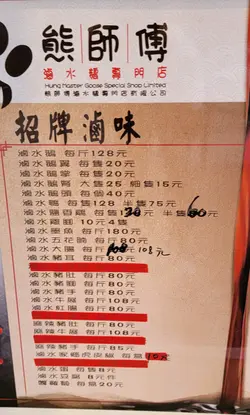 熊師傅
滷水鵝專門店
Hung Master Goose Special Shop Limited
熊師傅滷水鵝專門店有限公司
招牌滷味
滷水鵝 每斤128元
滷水鵝翼 每隻20元
滷水鵝掌 每隻20元
滷水鵝腎 大隻25 細隻15元
滷水鵝頭 每隻40元
滷水鴨 每隻128 半隻75元
滷水雞 半隻60元
滷水雞翅 10元4隻
滷水墨魚 每斤180元
滷水五花腩 每斤80元
滷水大腸 108元
滷水豬耳 每斤80元
滷水豬肚 每斤80元
滷水豬 每斤80元
滷水豬手 每斤80元
滷水牛 每斤80元
滷水紅腸 每斤80元
麻辣豬肚 每斤80元
麻辣牛 每斤80元
麻辣豬手 每斤85元
滷水家鄉虎皮椒 每 10元
滷水蛋 每隻8元
滷水豆腐 8元件
每 20元